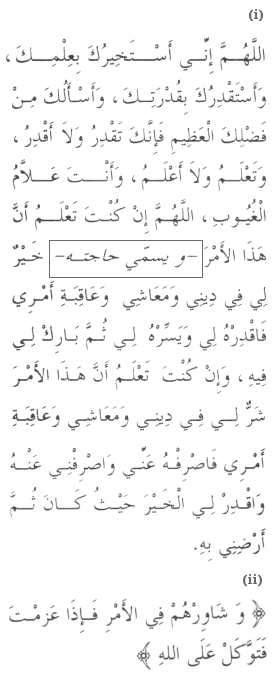 (i)
اللَّهُمَّ إِنِّي أَسْتَخِيرُكَ بِعِلْمِكَ،
وَأَسْتَقْدِرُكَ بِقُدْرَتِكَ، وَأَسْأَلُكَ مِنْ
فَضْلِكَ الْعَظِيمِ فَإِنَّكَ تَقْدِرُ وَلاَ أَقْدِرُ،
وَتَعْلَمُ وَلاَ أَعْلَمُ، وَأَنْتَ عَلاَّمُ
الْغُيُوبِ، اللَّهُمَّ إِنْ كُنْتَ تَعْلَمُ أَنَّ
هَذَا الأَمْرَ -و يسمّي حاجته- خَيْرٌ
لِي فِي دِينِي وَمَعَاشِي وَعَاقِبَةِ أَمْرِي
فَاقْدِرْهُ لِي وَيَسِّرْهُ لِي ثُمَّ بَارِكْ لِي
فِيهِ، وَإِنْ كُنْتَ تَعْلَمُ أَنَّ هَذَا الأَمْرَ
شَرٌّ لِي فِي دِينِي وَمَعَاشِي وَعَاقِبَةِ
أَمْرِي فَاصْرِفْهُ عَنِّي وَاصْرِفْنِي عَنْهُ
وَاقْدِرْ لِي الْخَيْرَ حَيْثُ كَانَ ثُمَّ
أَرْضِنِي بِهِ.
(ii)
﴿ وَ شَاوِرْهُمْ فِي الأَمْرِ فَإِذَا عَزَمْتَ
فَتَوَكَّلْ عَلَى اللهِ ﴾